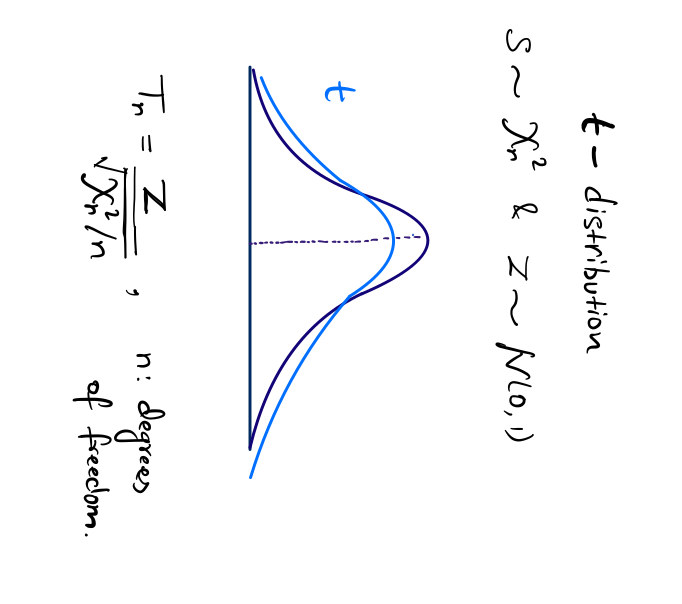 t - distribution
S ~ χₙ² & Z ~ N(0,1)
t
Tₙ = Z / √(χₙ²/n) , n: degrees
of freedom.